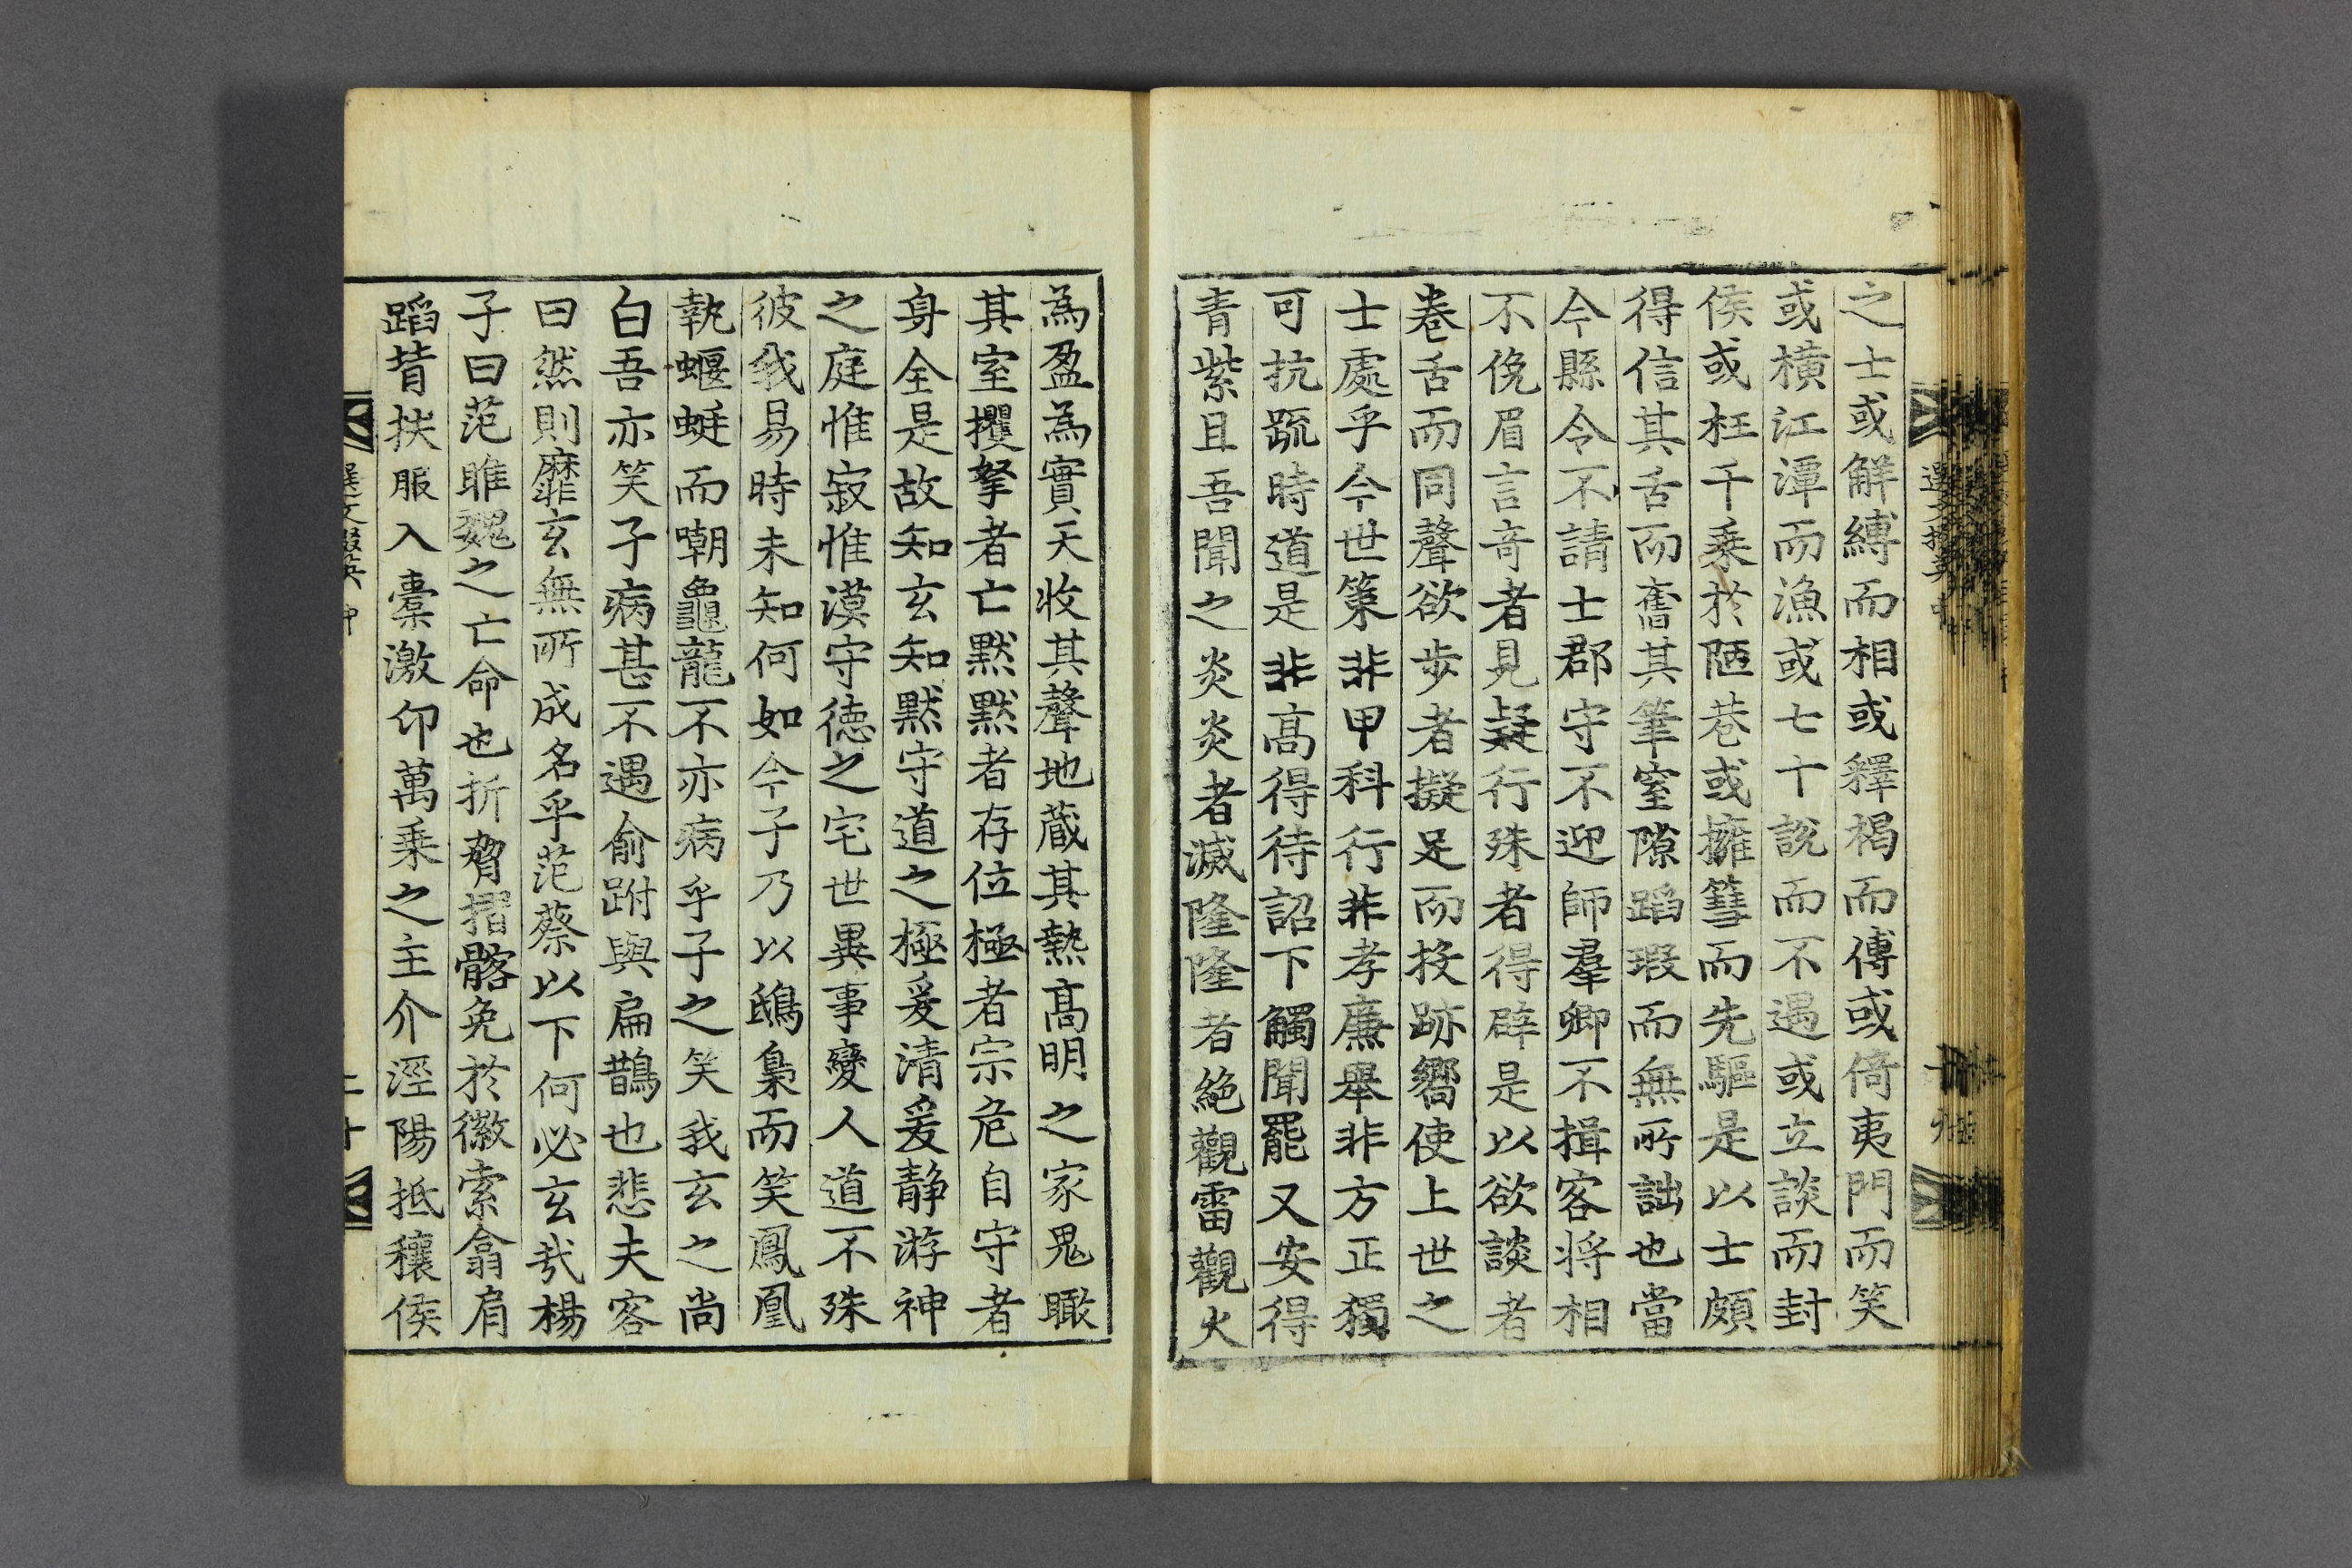 之士或觧縛而相或釋褐而傅或倚夷門而笑
或橫江潭而漁或七十說而不遇或立談而封
侯或枉千乘於陋巷或擁篲而先驅是以士頗
得信其舌而奮其筆窒隙蹈瑕而無所詘也當
今縣令不請士郡守不迎師羣卿不揖客將相
不俛眉言竒者見疑行殊者得辟是以欲談者
卷舌而同聲欲步者擬足而投跡嚮使上世之
士處乎今世策非甲科行非孝廉舉非方正獨
可抗䟽時道是非高得待詔下觸聞罷又安得
青紫且吾聞之炎炎者滅隆隆者絶觀雷觀火
為盈為實天收其聲地蔵其熱高明之家鬼瞰
其室攫拏者亡黙黙者存位極者宗危自守者
身全是故知玄知黙守道之極爰清爰静游神
之庭惟寂惟漠守德之宅世異事變人道不殊
彼我易時未知何如今子乃以鴟梟而笑鳳凰
執蝘蜓而嘲龜龍不亦病乎子之笑我玄之尚
白吾亦笑子病甚不遇俞跗與扁鵲也悲夫客
曰然則靡玄無所成名乎范蔡以下何必玄㢤楊
子曰范雎魏之亡命也折脅摺髂免於徽索翕肩
蹈背扶服入橐激卬萬乘之主介涇陽抵穰侯